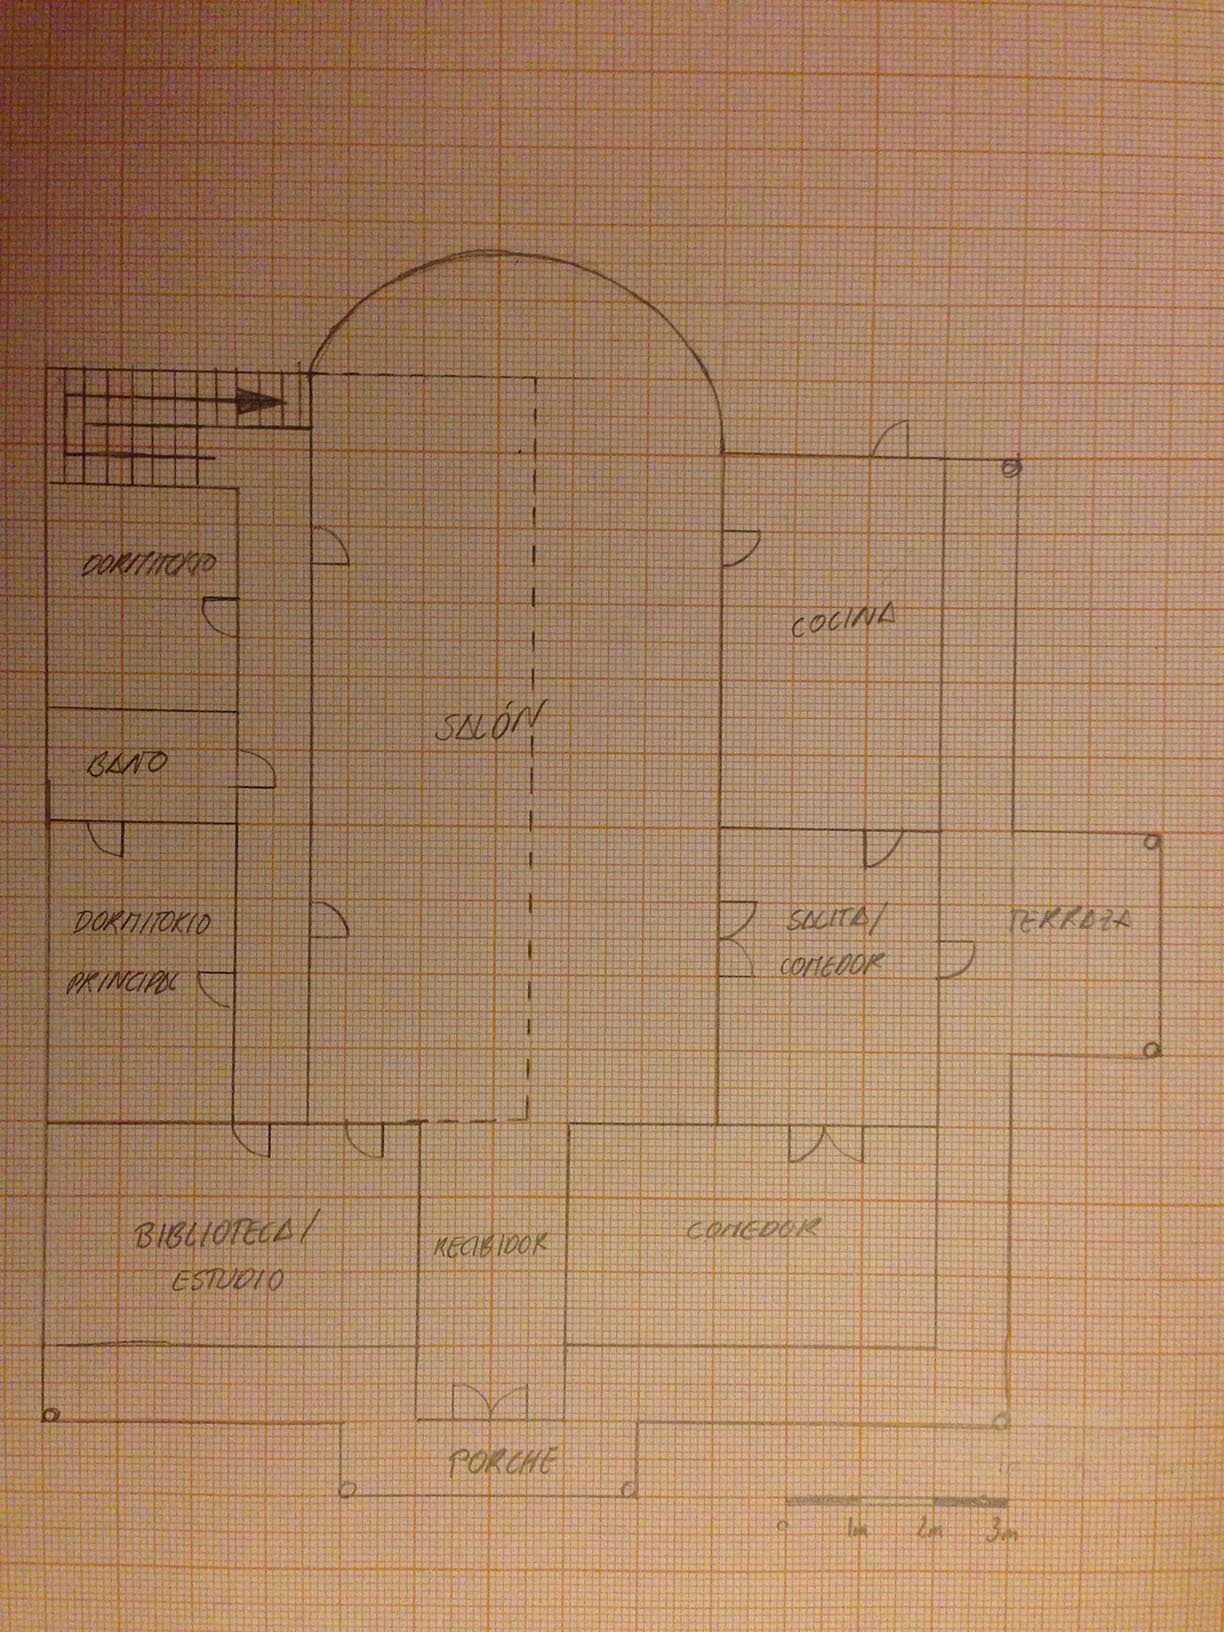 DORMITORIO
COCINA
SALÓN
BAÑO
DORMITORIO
PRINCIPAL
SALITA/
COMEDOR
TERRAZA
BIBLIOTECA/
ESTUDIO
RECIBIDOR
COMEDOR
PORCHE
0 1m 2m 3m